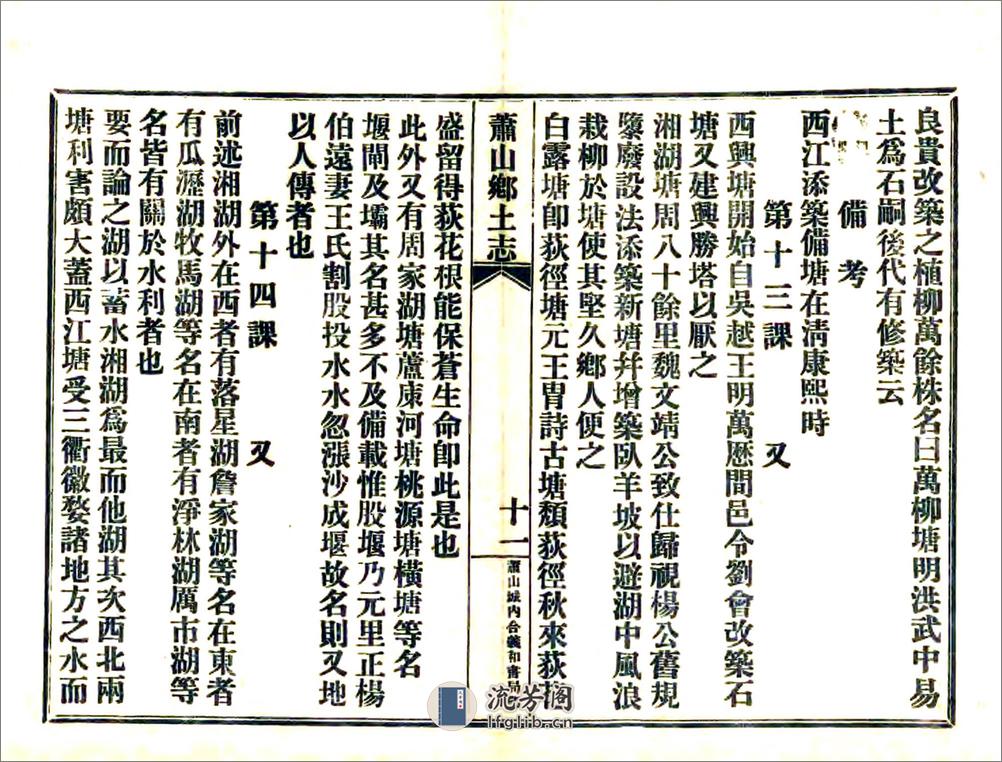 良貴改築之植柳萬餘株名曰萬柳塘明洪武中易
土爲石嗣後代有修築云
備考
西江添築備塘在清康熙時
第十三課 又
西興塘開始自吳越王明萬歷間邑令劉會改築石
塘又建興勝塔以厭之
湘湖塘周八十餘里魏文靖公致仕歸視楊公舊規
隳廢設法添築新塘幷增築臥羊坡以避湖中風浪
栽柳於塘使其堅久鄉人便之
白露塘卽荻徑塘元王冑詩古塘頹荻徑秋來荻
蕭山鄉土志
十一
蕭山城內合義和書局
盛留得荻花根能保蒼生命卽此是也
此外又有周家湖塘蘆康河塘桃源塘橫塘等名
堰閘及壩其名甚多不及備載惟股堰乃元里正楊
伯遠妻王氏割股投水水忽漲沙成堰故名則又地
以人傳者也
第十四課 又
前述湘湖外在西者有落星湖詹家湖等名在東者
有瓜瀝湖牧馬湖等名在南者有淨林湖厲市湖等
名皆有關於水利者也
要而論之湖以蓄水湘湖爲最而他湖其次西北兩
塘利害頗大蓋西江塘受三衢徽婺諸地方之水而
流芳阁
lfglib.cn